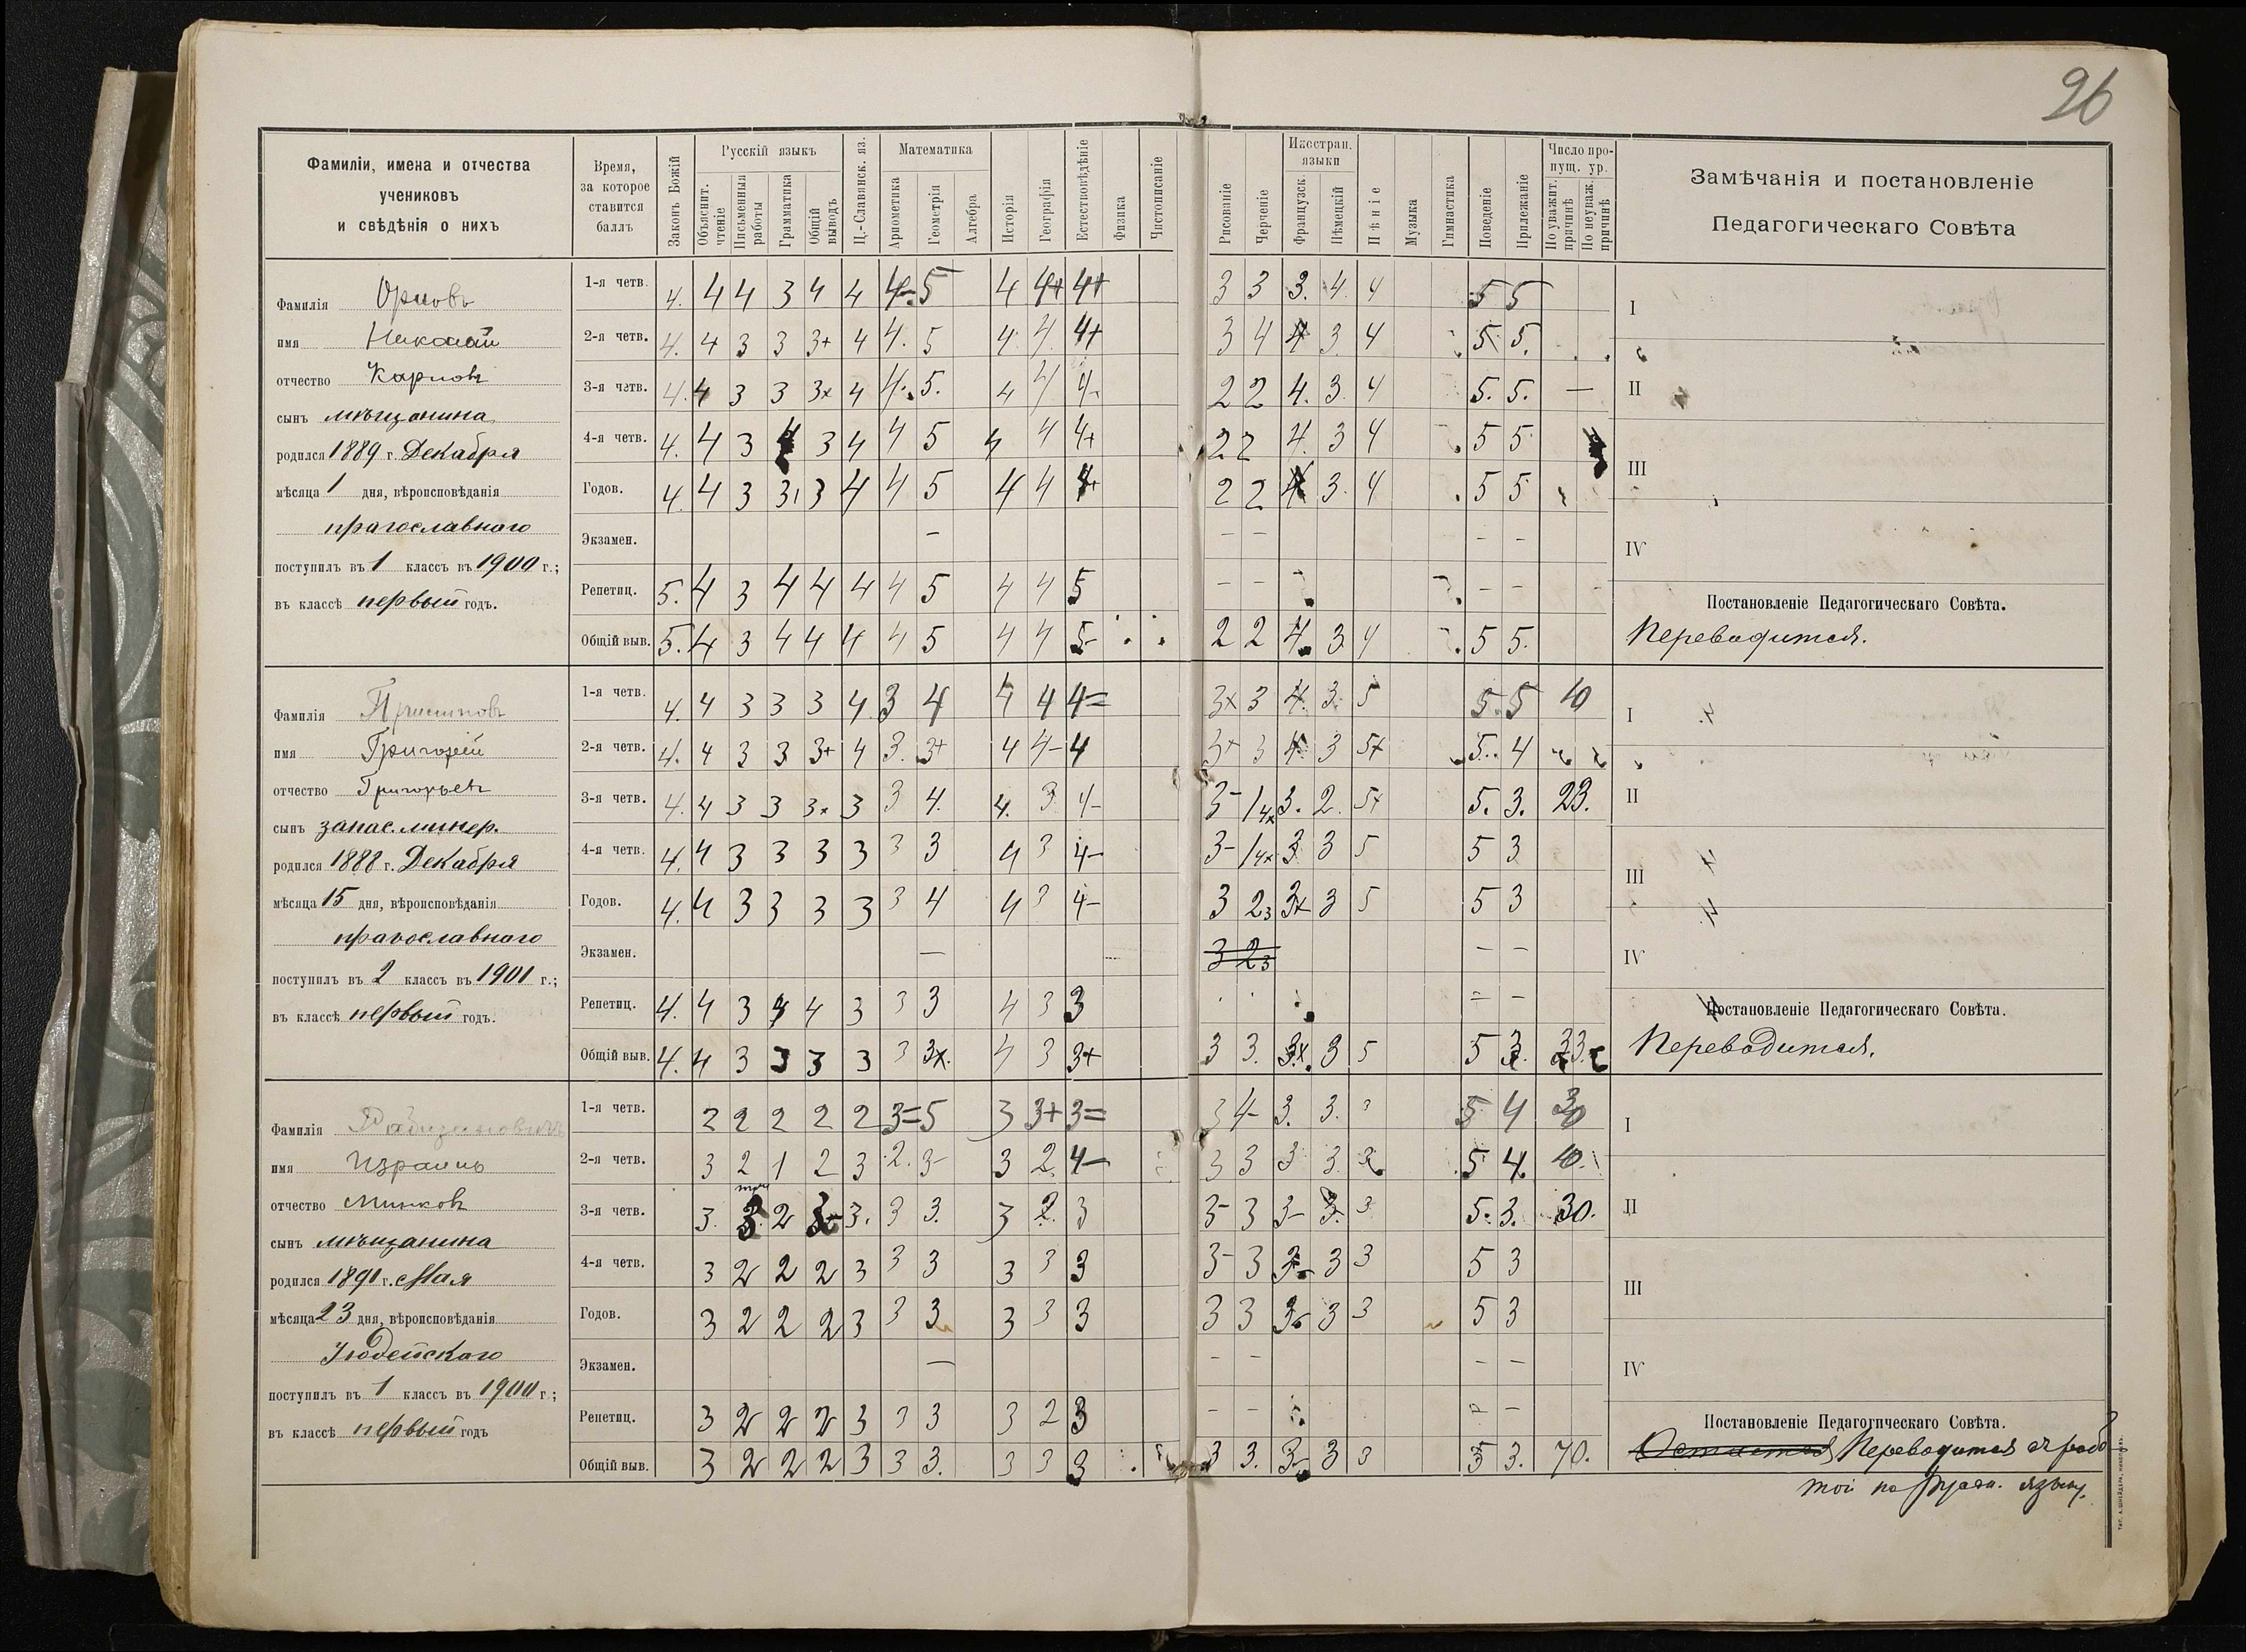 26
Фамиліи, имена и отчества
учениковъ
и свѣдѣнія о нихъ
Время,
за которое
ставится
баллъ
Законъ Божій
Русскій языкъ
Объяснит. чтеніе
Письменныя работы
Грамматика
Общій выводъ
Ц.-Славянск. яз.
Математика
Ариѳметика
Геометрія
Алгебра
Исторія
Географія
Естествовѣдѣніе
Физика
Чистописаніе
Рисованіе
Черченіе
Иностран. языки
Французск.
Нѣмецкій
Пѣніе
Музыка
Гимнастика
Поведеніе
Прилежаніе
Число пропущ. ур.
По уважит. причинѣ
По неуваж. причинѣ
Замѣчанія и постановленіе
Педагогическаго Совѣта
Фамилія Орловъ
имя Николай
отчество Карповъ
сынъ мѣщанина
родился 1889 г. Декабря
мѣсяца 1 дня, вѣроисповѣданія
православнаго
поступилъ въ 1 классъ въ 1900 г.;
въ классѣ первый годъ.
1-я четв. 4. 4 4 3 4 4 4-. 5 4 4+ 4+ 3 3 3. 4. 4 5 5
2-я четв. 4. 4 3 3 3+ 4 4. 5 4. 4. 4+ 3 4 4 3. 4 5. 5.
3-я четв. 4. 4 3 3 3х 4 4. 5. 4 4 4- 2 2 4. 3. 4 5. 5. —
4-я четв. 4. 4 3 3 4 4 5 4 4 4+ 2 2 4. 3 4 5 5
Годов. 4. 4 3 3 3 4 4 5 4 4 4+ 2 2 4 3. 4 5 5
Экзамен. — — — — —
Репетиц. 5. 4 3 4 4 4 4 5 4 4 5 — — — —
Общій выв. 5. 4 3 4 4 4 4 5 4 4 5- 2 2 4. 3 4 5 5.
I
II
III
IV
Постановленіе Педагогическаго Совѣта.
Переводится.
Фамилія
имя Григорій
отчество Григорьевъ
сынъ запас. минер.
родился 1888 г. Декабря
мѣсяца 15 дня, вѣроисповѣданія
православнаго
поступилъ въ 2 классъ въ 1901 г.;
въ классѣ первый годъ.
1-я четв. 4. 4 3 3 3 4 3 4 4 4 4= 3х 3 4. 3. 5 5. 5 10
2-я четв. 4. 4 3 3 3+ 4 3. 3+ 4 4- 4 3+ 3 4. 3 5+ 5. 4
3-я четв. 4. 4 3 3 3х 3 3 4. 4. 3 4- 3- 1 4х 3. 2. 5+ 5. 3. 23.
4-я четв. 4. 4 3 3 3 3 3 3 4 3 4- 3- 1 4х 3 3 5 5 3
Годов. 4. 4 3 3 3 3 3 4 4 3 4- 3 2 3 3х 3 5 5 3
Экзамен. — 3 2 3 — —
Репетиц. 4. 4 3 4 4 3 3 3 4 3 3 — —
Общій выв. 4. 4 3 3 3 3 3 3х. 4 3 3+ 3 3. 3х. 3 5 5 3. 33.
I
II
III
IV
Постановленіе Педагогическаго Совѣта.
Переводится.
Фамилія
имя Израиль
отчество Минковъ
сынъ мѣщанина
родился 1890 г. Мая
мѣсяца 23 дня, вѣроисповѣданія
Іудейскаго
поступилъ въ 1 классъ въ 1900 г.;
въ классѣ первый годъ
1-я четв. 2 2 2 2 2 3= 5 3 3+ 3= 3 4- 3. 3. 3 5 4 30
2-я четв. 3 2 1 2 3 2. 3- 3 2. 4- 3 3 3 3. 5 4. 10.
3-я четв. 3. 3. 2 3- 3. 3 3. 3 2. 3 3- 3 3- 3. 3 5. 3. 30.
4-я четв. 3 2 2 2 3 3 3 3 3 3 3- 3 3- 3 3 5 3
Годов. 3 2 2 2 3 3 3 3 3 3 3 3 3 3 3 5 3
Экзамен. — — — — —
Репетиц. 3 2 2 2 3 3 3 3 2 3 — — —
Общій выв. 3 2 2 2 3 3 3. 3 3 3 3 3. 3- 3 3 5 3. 70.
I
II
III
IV
Постановленіе Педагогическаго Совѣта.
Остается Переводится съ рабо-
той по русск. языку.